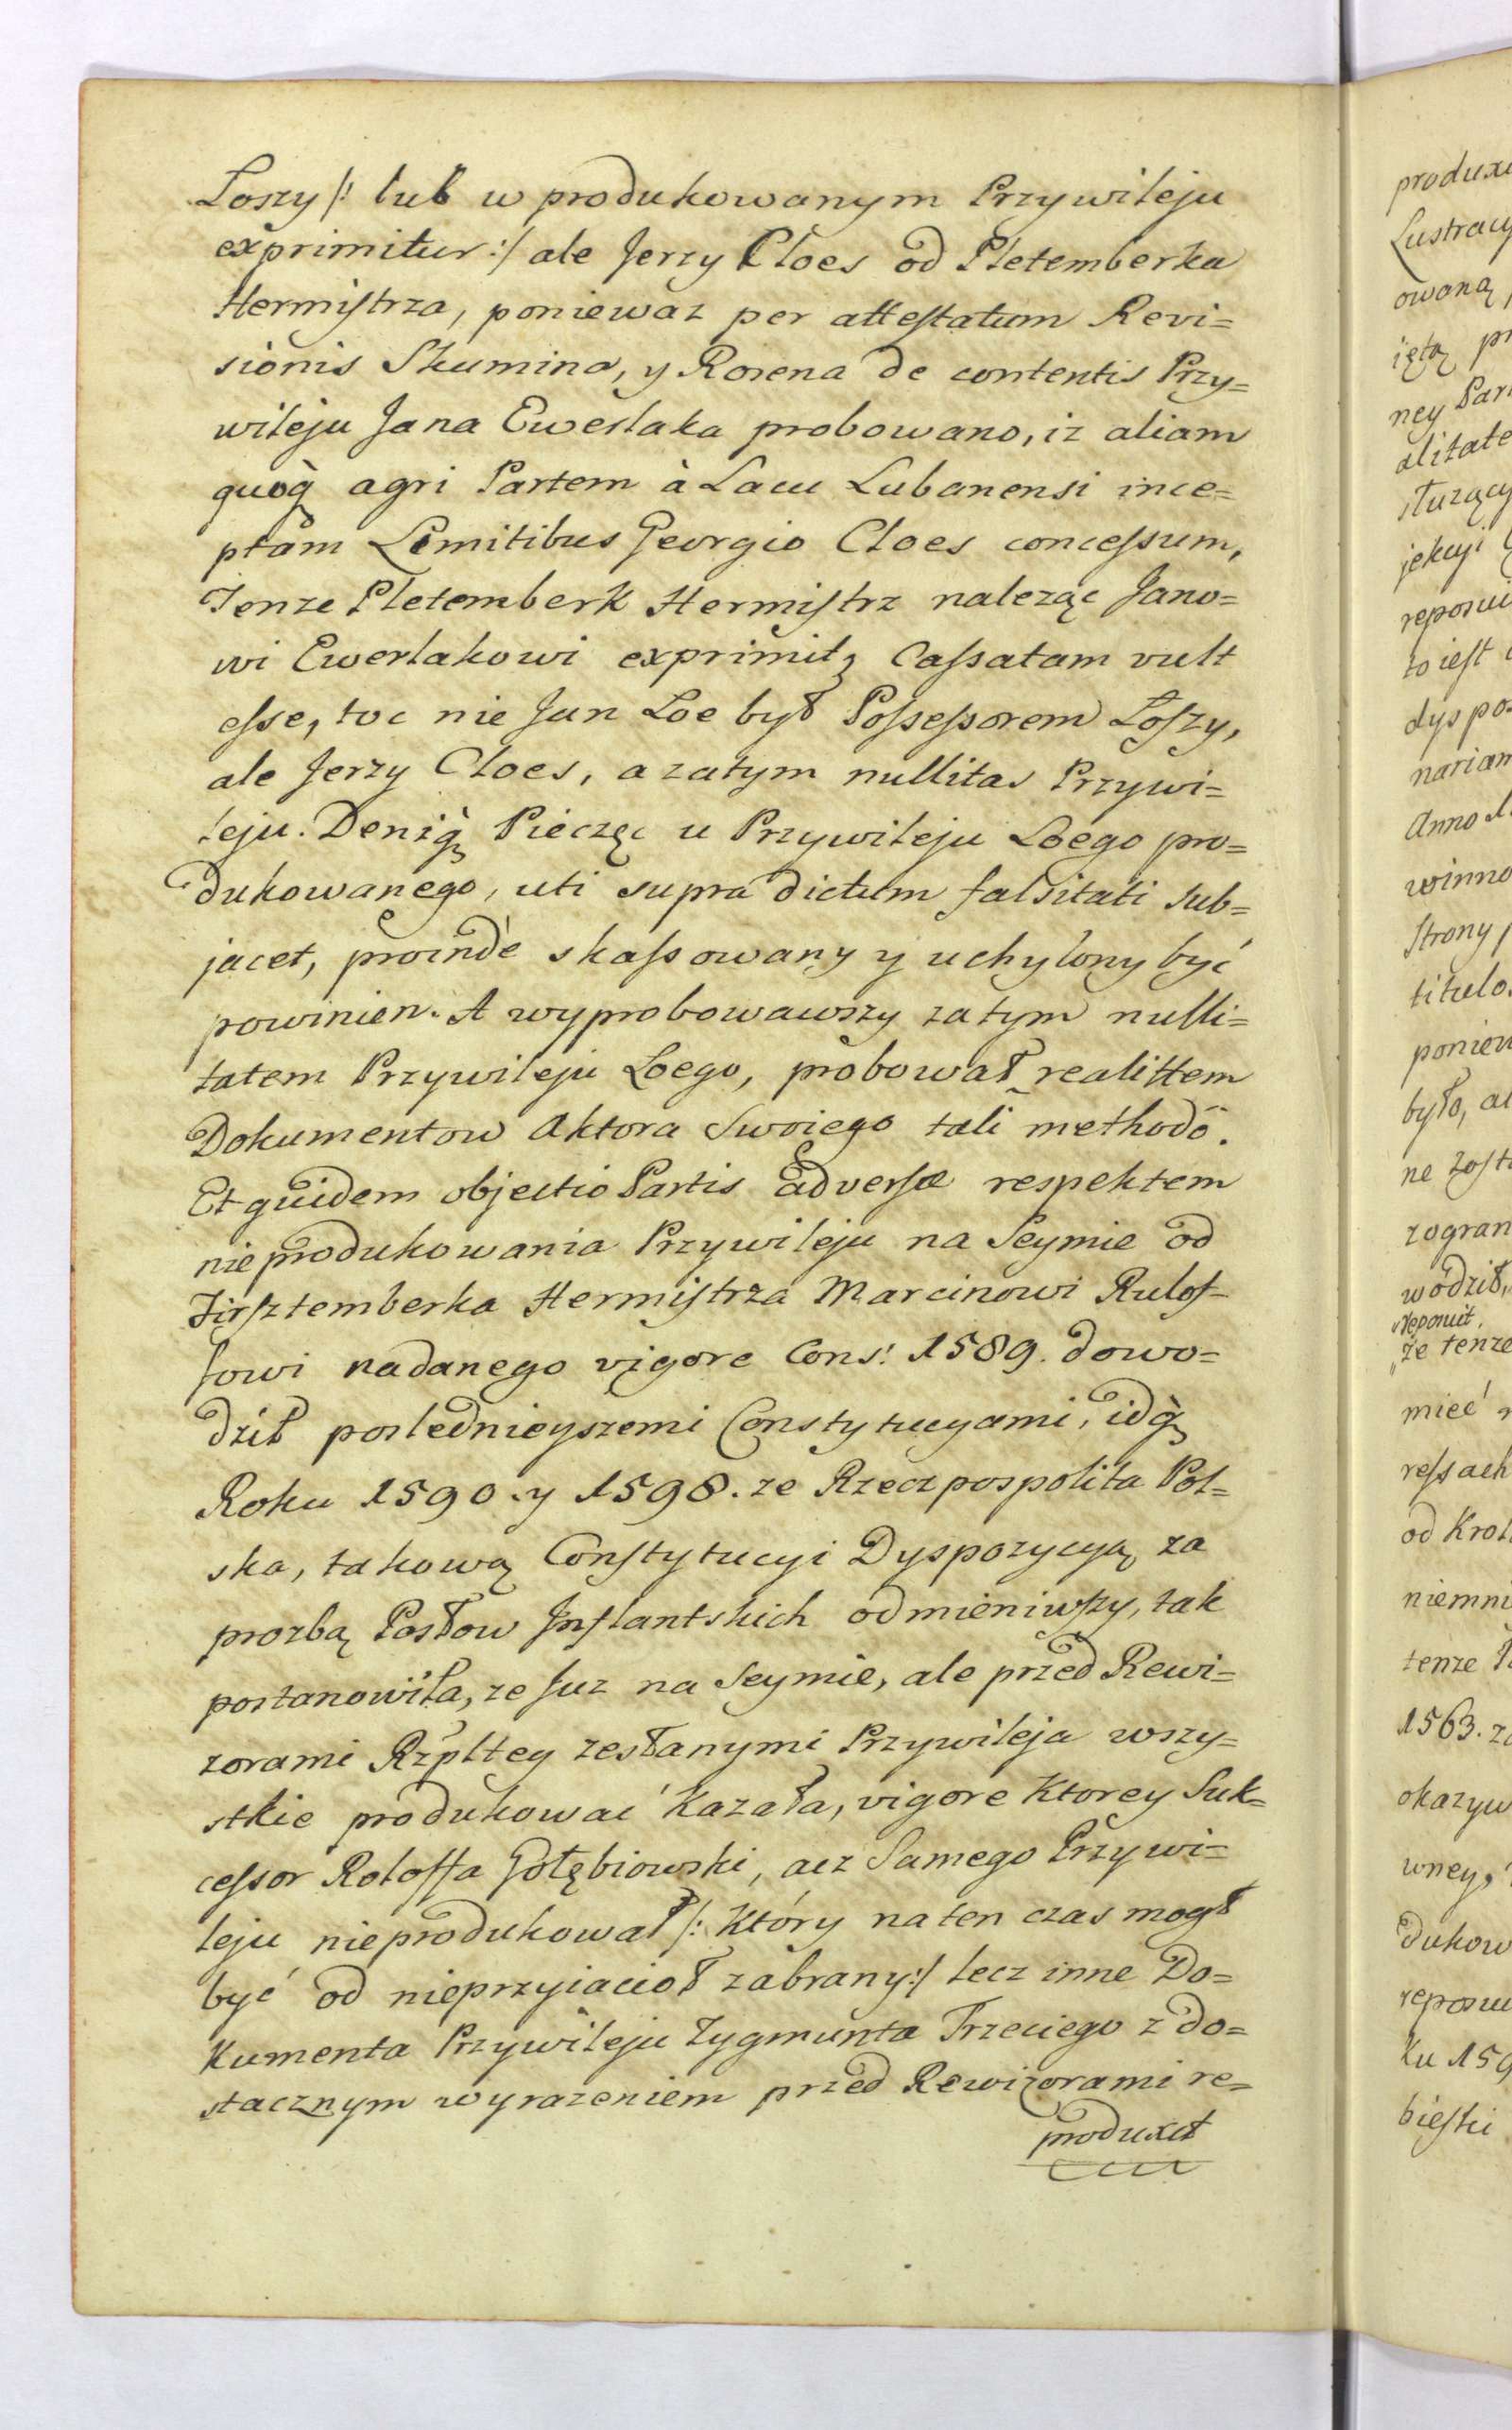 Loszy /: lub w produkowanym Przywileju
exprimitur :/ ale Jerzy Cloes od Pletemberka
Hermiſtrza, poniewaz per atteſtatum Revi=
sionis Skumina, y Rosena de contentis Przy=
wileju Jana Ewerlaka probowano, iz aliam
quoq̀ agri Partem à Lacu Lubanensi ince=
ptam Limitibus Georgio Cloes conceſsum,
Tenze Pletemberk Hermiſtrz naleząc Jano=
wi Ewerlakowi exprimitꝫ Caſsatam vult
eſse, toc nie Jan Loe był Poſseſsorem Loſzy,
ale Jerzy Cloes, a zatym nullitas Przywi=
leju. Deniq̀ꝫ Pieczęc u Przywileju Loego pro=
dukowanego, uti supra dictum falsitati sub=
jacet, proindè skaſsowany y uchylony być
powinien. A wyprobowawszy zatym nulli=
tatem Przywileju Loego, probował realittem
Dokumentow Aktora Swoiego tali methodô.
Et quidem objectio Partis adverſæ respektem
nieprodukowania Przywileju na Seymie od
Firſztemberka Hermiſtrza Marcinowi Rulof=
fowi nadanego vigore Cons: 1589. dowo=
dził poslednieyszemi Constytucyami, idq̀ꝫ
Roku 1590. y 1598. ze Rzeczpospolita Pol=
ska, takową Conſtytucyi Dyspozycyą za
prozbą Posłow Inflantskich odmieniwſzy, tak
postanowiła, ze Juz na Seymie, ale przed Rewi=
zorami Rzpltey zesłanymi Przywileja wszy=
stkie produkować Kazała, vigore Ktorey Suk=
ceſsor Roloffa Gołębiowski, acz Samego Przywi=
leju nieprodukował /: Który na ten czas mogł
być od nieprzyiacioł zabrany :/ lecz inne Do=
kumenta Przywileju Zygmunta Trzeciego z do=
stacznym wyrazeniem przed Rewizorami re=
produxit
produxi
Lustracy
owaną,
iętą pr
ney Par
alitate
służący
jekcyi
reposui
to ieſt
dyspo=
narian
Anno
winno
Strony
titulo
poniew
było, al
ne zoſt
zogran
wodził,
reposuit,
„że tenże
mieć
reſsach
od Krol
niemni
tenze
1563. z
okazyw
wney,
dukow
reposui
ku 159
bieſki